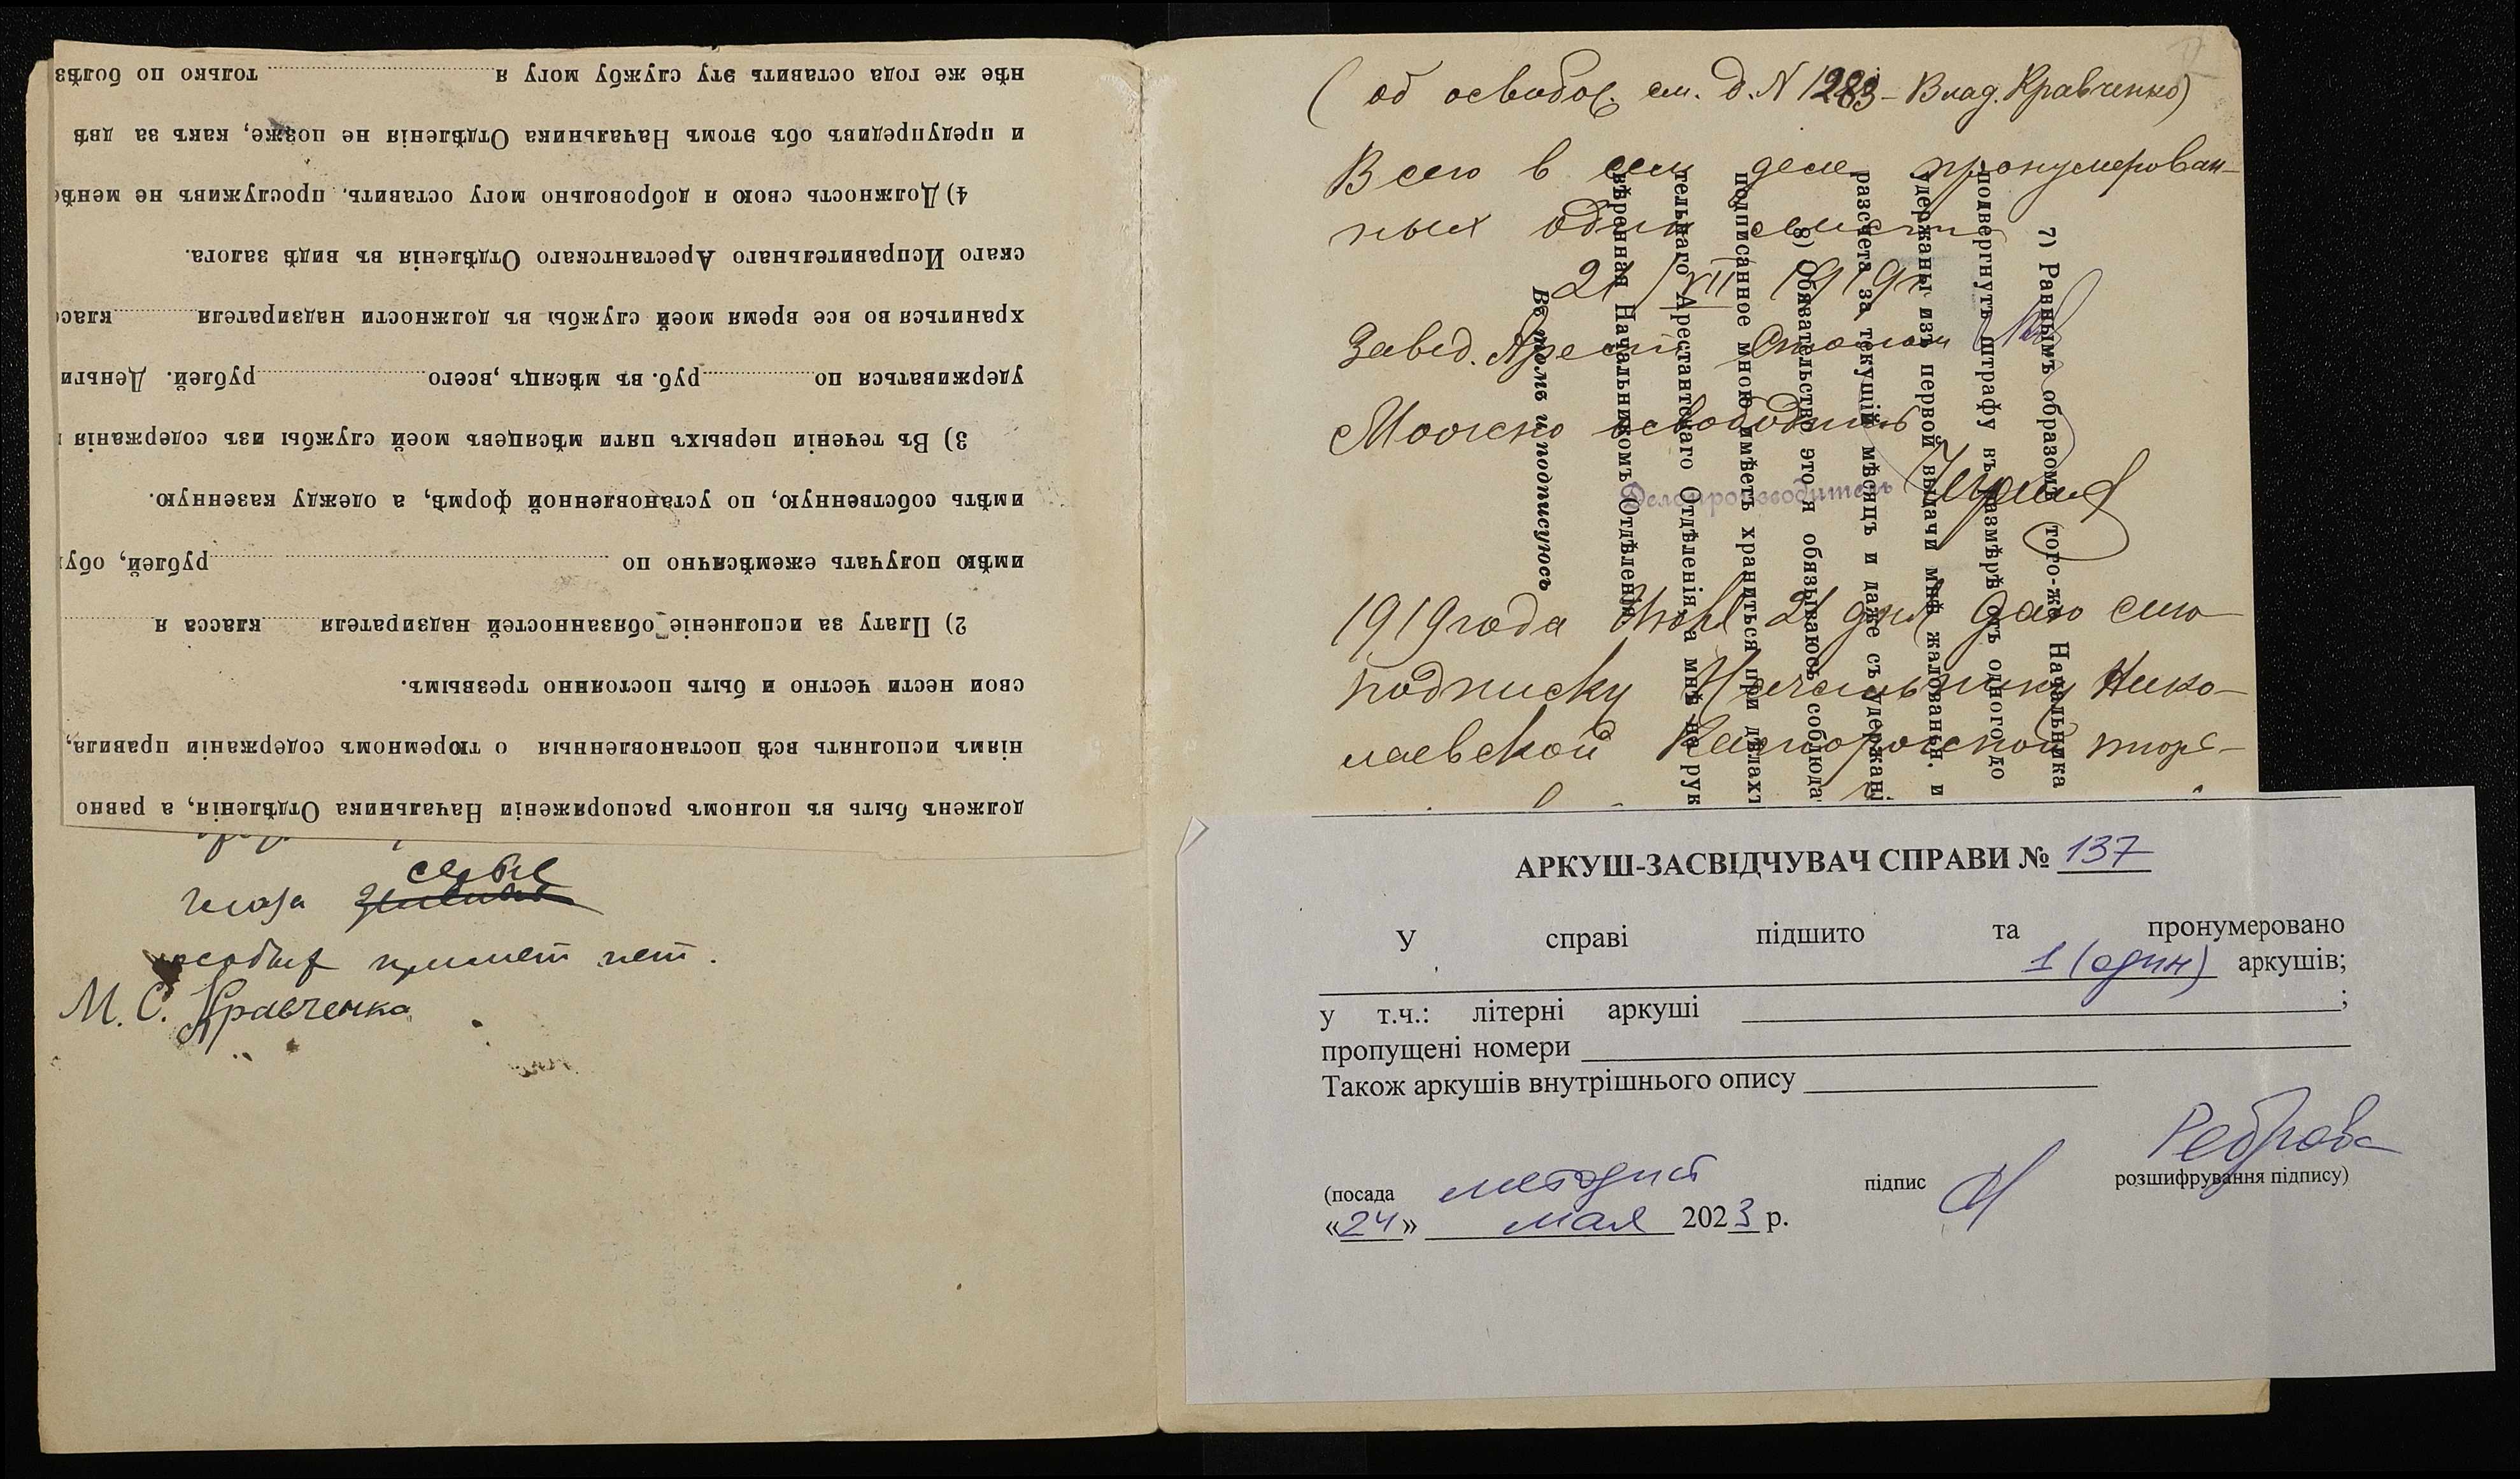 должен быть въ полномъ распоряженіи Начальника Отдѣленія, а равно
ніямъ исполнять всѣ постановленныя о тюремномъ содержаніи правила,
свои нести честно и быть постоянно трезвымъ.
2) Плату за исполненіе обязанностей надзирателя класса я
имѣю получать ежемѣсячно по рублей,
имѣть собственную, по установленной формѣ, а одежду казенную.
3) Въ теченіи первыхъ пяти мѣсяцевъ моей службы изъ содержанія
удерживаться по руб. въ мѣсяцъ, всего рублей. Деньги
храниться во все время моей службы въ должности надзирателя
скаго Исправительнаго Арестантскаго Отдѣленія въ видѣ залога.
4) Должность свою я добровольно могу оставить, прослуживъ не
и предупредивъ объ этомъ Начальника Отдѣленія не позже, какъ за двѣ
нѣе же года оставить эту службу могу я только по
глаза серые
особых примет нет.
М. С. Кравченко
(об освобод. см. д. N 1283 - Влад. Кравченко)
Всего в сем деле пронумерован-
ных один лист
21/VII 1919 г.
Завед. Арест. Столом
Можно освободить
Делопроизводитель
1919 года Июля 21 дня даю сию
подписку Начальнику Нико-
лаевской Каторжной тюрь-
7) Равнымъ образомъ того-же Начальника
подвергнуть штрафу въ размѣрѣ отъ одного до
удержаны изъ первой выдачи мнѣ жалованья. и
разсчета за текущій мѣсяцъ и даже съ удержані
8) Обязательство это я обязываюсь соблюда
подписанное мною имѣетъ храниться при дѣлахъ
тельнаго Арестантскаго Отдѣленія, а мнѣ на рук
вѣренная Начальникомъ Отдѣленія
Въ томъ и подписуюсь
АРКУШ-ЗАСВІДЧУВАЧ СПРАВИ № 137
У справі підшито та пронумеровано
1 (один) аркушів;
у т.ч.: літерні аркуші ;
пропущені номери
Також аркушів внутрішнього опису
(посада методист підпис Реброва розшифрування підпису)
«24» мая 2023 р.